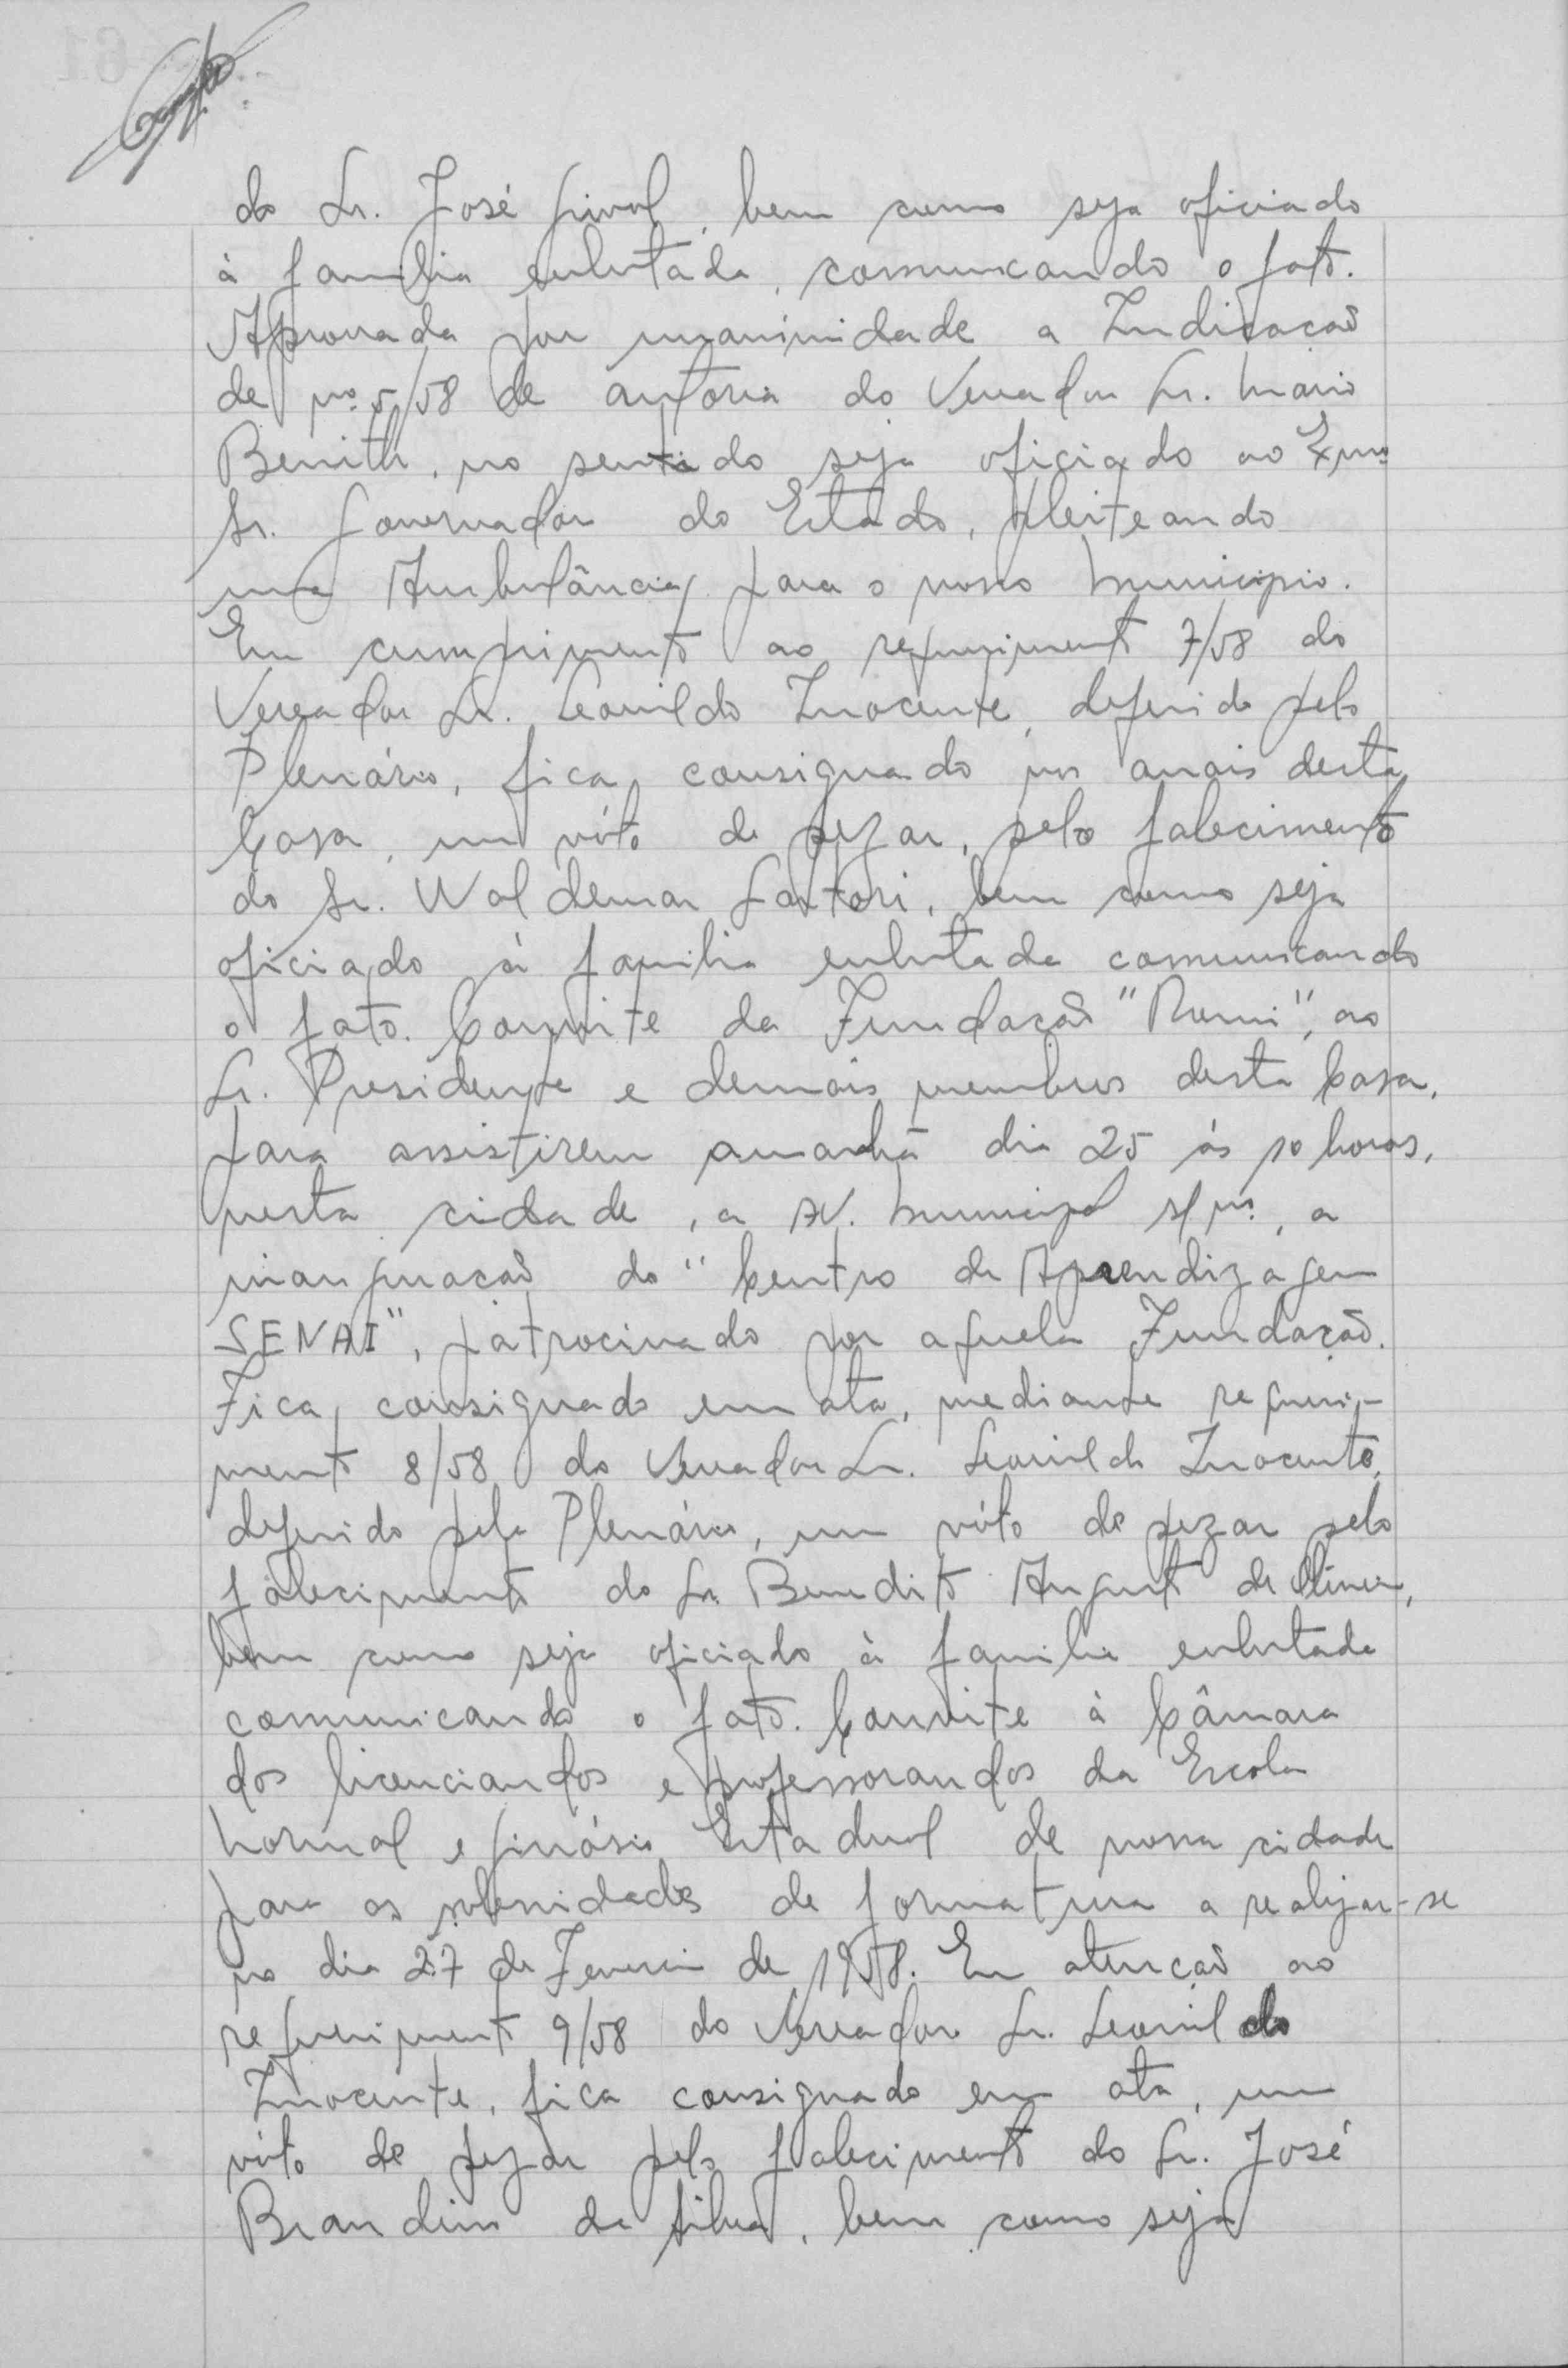 do Sr. José Giral, bem como seja oficiado
à familia enlutada, comunicando o fato.
Aprovada por unanimidade a Indicação
de nº 5/58 de autoria do Vereador Sr. Mario
Benith, no sentido seja oficiado ao Exmo
Sr. Governador do Estado, pleiteando
uma Ambulância para o nosso Municipio.
Em cumprimento ao requerimento 7/58 do
Vereador Sr. Leonildo Inocente, deferido pelo
Plenário, fica consignado nos anais desta
Casa, um vóto de pezar, pelo falecimento
do Sr. Waldemar Sartori, bem como seja
oficiado à familia enlutada comunicando
o fato. Convite da Fundação "Romi", ao
Sr. Presidente e demais membros desta Casa,
para assistirem amanhã dia 25 às 10 horas,
nesta cidade, a AV. Municipal s/nº, a
inauguração do "Centro de Aprendizagem
SENAI", patrocinado por aquela Fundação.
Fica consignado em ata, mediante requeri-
mento 8/58 do Vereador Sr. Leonildo Inocente,
deferido pelo Plenário, um vóto de pezar pelo
falecimento do Sr. Benedito Augusto de Oliveira,
bem como seja oficiado à familia enlutada
comunicando o fato. Convite à Câmara
dos licenciandos e professorandos da Escola
Normal e Ginásio Estadual de nossa cidade
para as solenidades de formatura a realizar-se
no dia 27 de Fevereiro de 1958. Em atenção ao
requerimento 9/58 do Vereador Sr. Leonildo
Inocente, fica consignado em ata, um
vóto de pezar pelo falecimento do Sr. José
Brandino da Silva, bem como seja